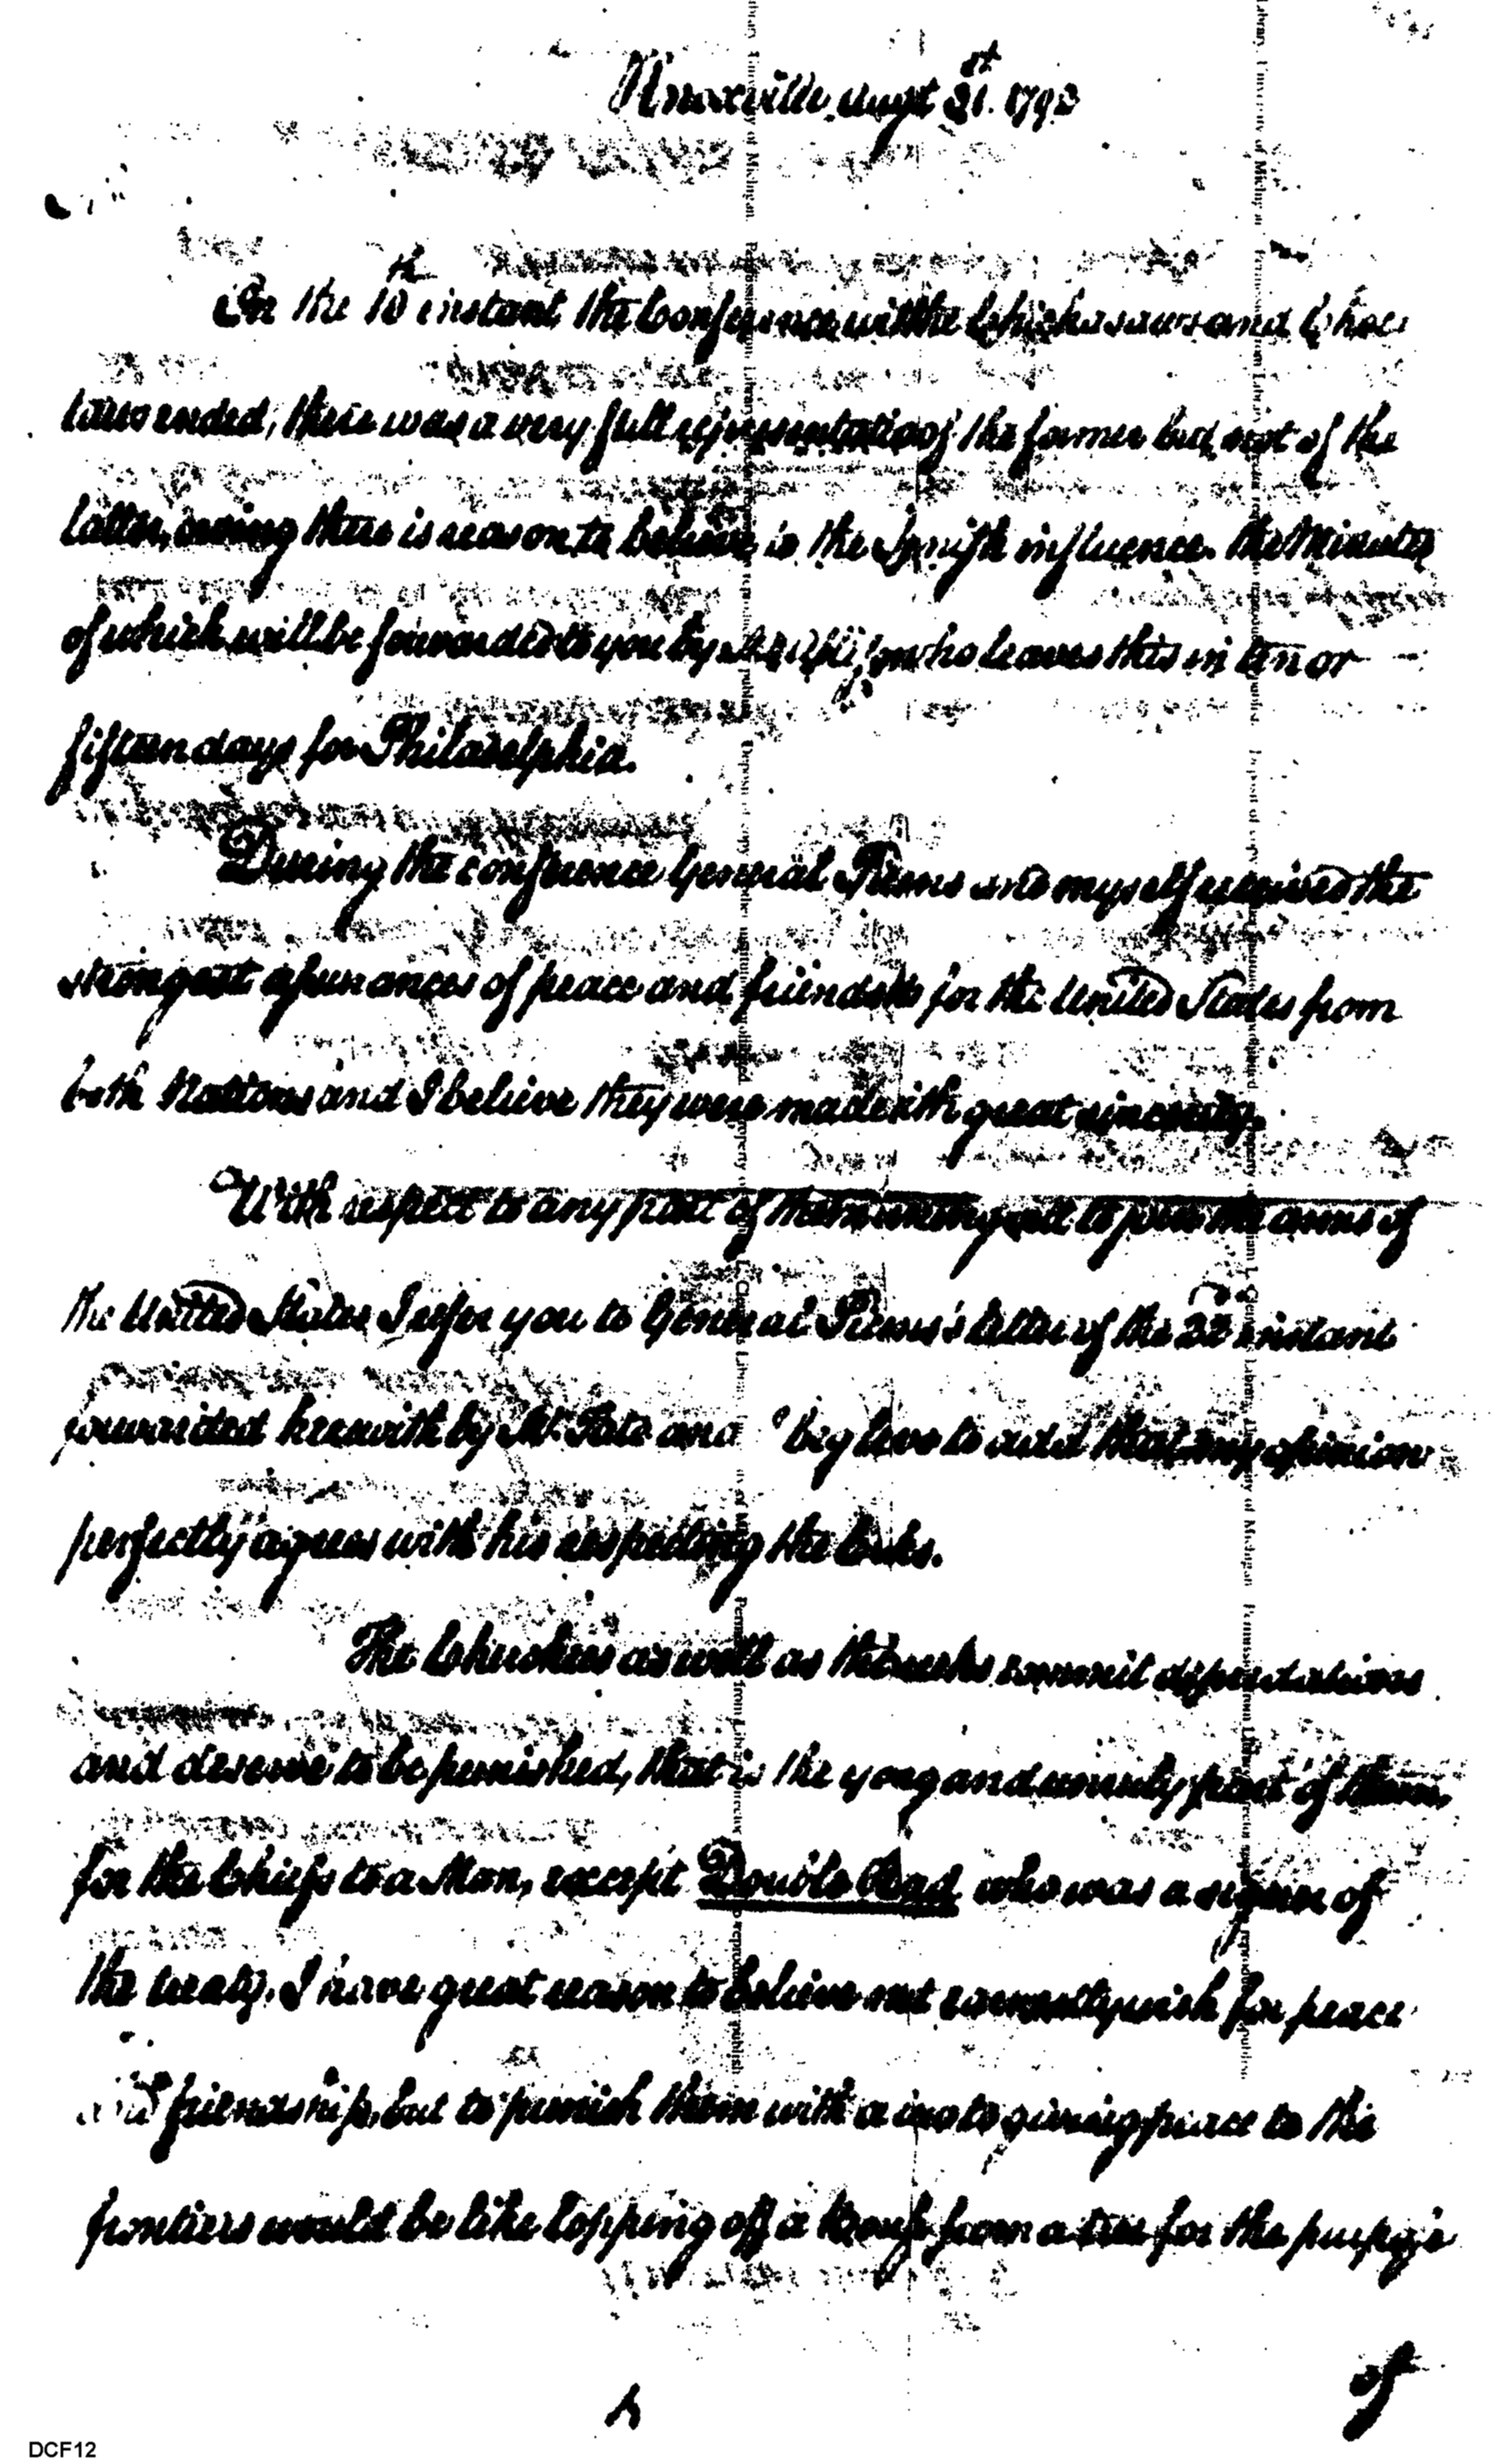 Knoxville, Augt 31st. 1792
On the 10th instant the Conference with the Chickasaws and Choc
taws ended, there was a very full representatio of the former but not of the
latter, owing there is reason to believe to the Spanish influence. The Minutes
of which will be forwarded to you by who leaves this in ten or
fifteen days for Philadelphia.
During the conference General Pickens and myself received the
strongest assurances of peace and friendship for the United States from
both Nations and I believe they were made with great sincerity.
With respect to any part of them to join the arms of
the United States I refer you to General Pickens's letter of the 22d instant
forwarded herewith by Mr. Tate and beg leave to add that my opinion
perfectly agrees with his respecting the Creeks.
The Cherokees as well as the Creeks commit depredations
and deserve to be punished, that is the yong and unruly part of them,
for the Chiefs to a Man, except Double Head who was a signer of
the treaty, I have great reason to believe not earnestly wish for peace
and friendship, but to punish them with a to giving peace to the
frontiers would be like lopping off a bough from a tree for the purpose
of
DCF12